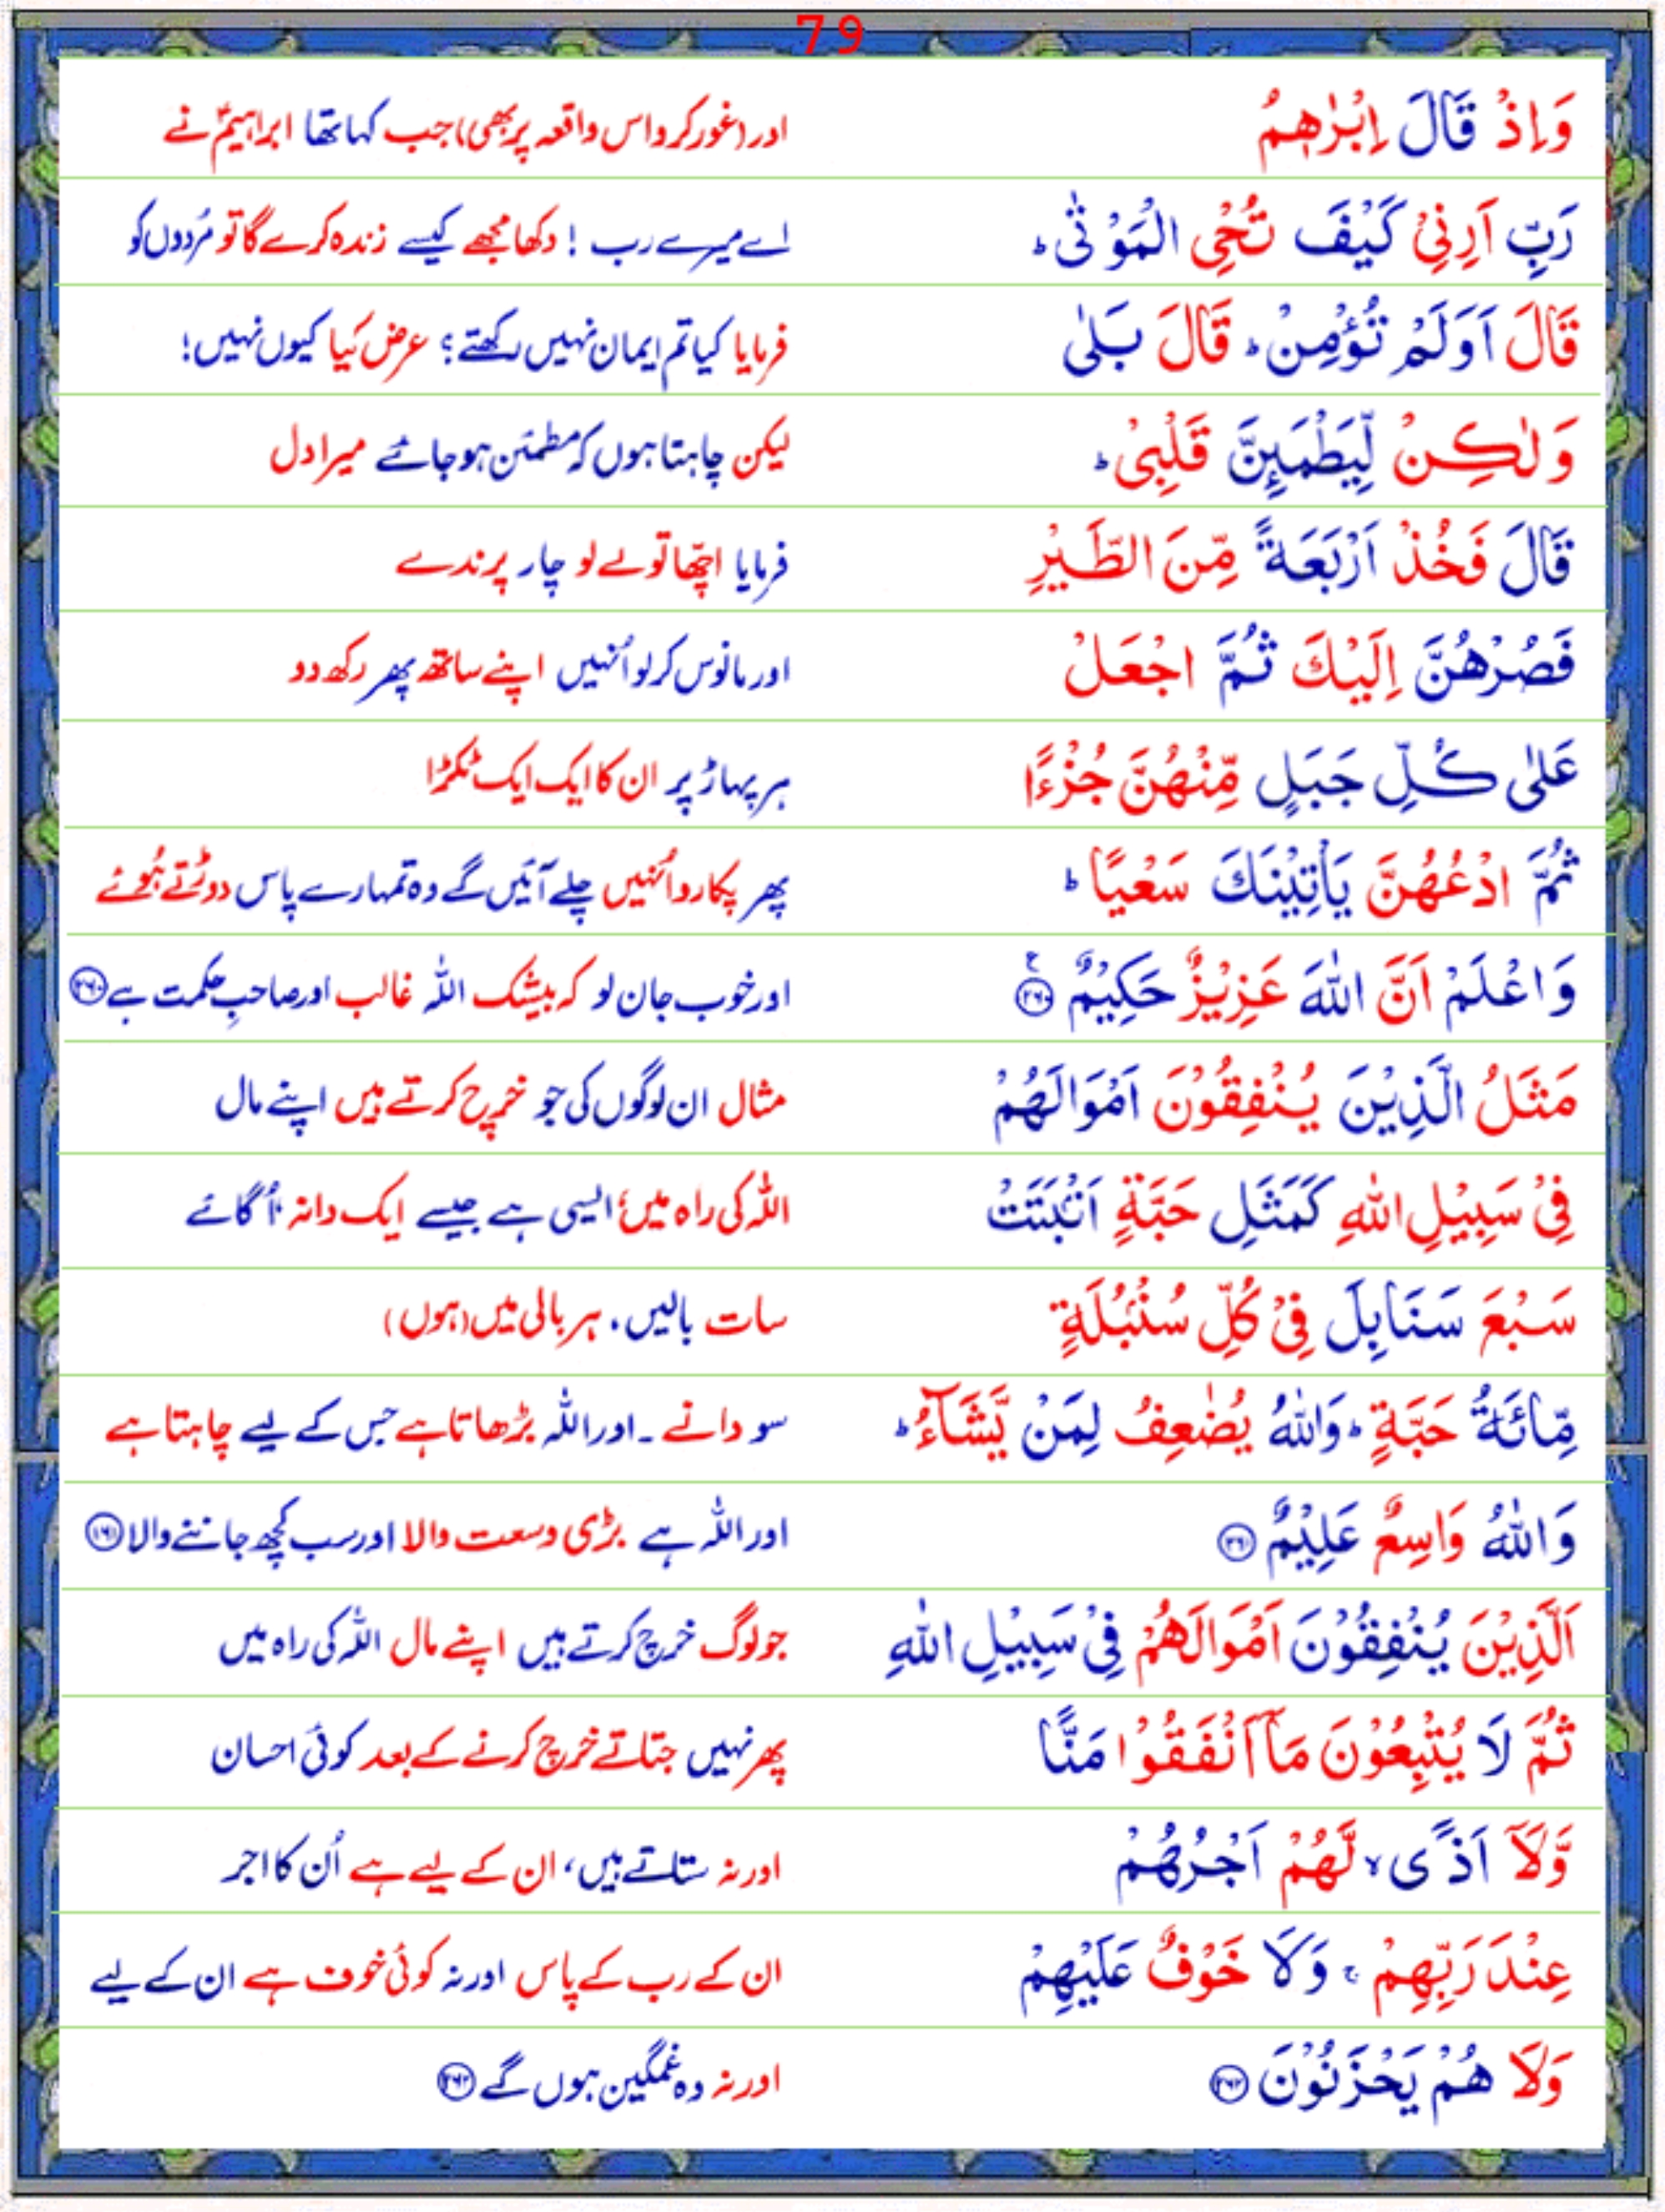 79
وَاِذْ قَالَ اِبْرٰهٖمُ اور (غور کرو اس واقعہ پر بھی) جب کہا تھا ابراہیمؑ نے
رَبِّ اَرِنِیْ كَیْفَ تُحْیِ الْمَوْتٰی ؕ اے میرے رب ! دکھا مجھے کیسے زندہ کرے گا تو مُردوں کو
قَالَ اَوَلَمْ تُؤْمِنْ ؕ قَالَ بَلٰی فرمایا کیا تم ایمان نہیں رکھتے ؟ عرض کیا کیوں نہیں!
وَلٰكِنْ لِّیَطْمَىِٕنَّ قَلْبِیْ ؕ لیکن چاہتا ہوں کہ مطمئن ہوجائے میرا دل
قَالَ فَخُذْ اَرْبَعَةً مِّنَ الطَّیْرِ فرمایا اچّھا تو لے لو چار پرندے
فَصُرْهُنَّ اِلَیْكَ ثُمَّ اجْعَلْ اور مانوس کرلو اُنہیں اپنے ساتھ پھر رکھ دو
عَلٰی كُلِّ جَبَلٍ مِّنْهُنَّ جُزْءًا ہر پہاڑ پر ان کا ایک ایک ٹکڑا
ثُمَّ ادْعُهُنَّ یَاْتِیْنَكَ سَعْیًا ؕ پھر پکارو اُنہیں چلے آئیں گے وہ تمہارے پاس دوڑتے ہُوئے
وَاعْلَمْ اَنَّ اللّٰهَ عَزِیْزٌ حَكِیْمٌ ۠﴿۲۶۰﴾ اور خوب جان لو کہ بیشک اللہ غالب اور صاحبِ حکمت ہے ﴿۲۶۰﴾
مَثَلُ الَّذِیْنَ یُنْفِقُوْنَ اَمْوَالَهُمْ مثال ان لوگوں کی جو خرچ کرتے ہیں اپنے مال
فِیْ سَبِیْلِ اللّٰهِ كَمَثَلِ حَبَّةٍ اَنْۢبَتَتْ اللہ کی راہ میں، ایسی ہے جیسے ایک دانہ اُگائے
سَبْعَ سَنَابِلَ فِیْ كُلِّ سُنْۢبُلَةٍ سات بالیں، ہر بالی میں (ہوں)
مِّائَةُ حَبَّةٍ ؕ وَاللّٰهُ یُضٰعِفُ لِمَنْ یَّشَآءُ ؕ سو دانے ۔ اور اللہ بڑھاتا ہے جس کے لیے چاہتا ہے
وَاللّٰهُ وَاسِعٌ عَلِیْمٌ ﴿۲۶۱﴾ اور اللہ ہے بڑی وسعت والا اور سب کچھ جاننے والا ﴿۲۶۱﴾
اَلَّذِیْنَ یُنْفِقُوْنَ اَمْوَالَهُمْ فِیْ سَبِیْلِ اللّٰهِ جو لوگ خرچ کرتے ہیں اپنے مال اللہ کی راہ میں
ثُمَّ لَا یُتْبِعُوْنَ مَاۤ اَنْفَقُوْا مَنًّا پھر نہیں جتاتے خرچ کرنے کے بعد کوئی احسان
وَّلَاۤ اَذًی ۙ لَّهُمْ اَجْرُهُمْ اور نہ ستاتے ہیں، ان کے لیے ہے اُن کا اجر
عِنْدَ رَبِّهِمْ ۚ وَلَا خَوْفٌ عَلَیْهِمْ ان کے رب کے پاس اور نہ کوئی خوف ہے ان کے لیے
وَلَا هُمْ یَحْزَنُوْنَ ﴿۲۶۲﴾ اور نہ وہ غمگین ہوں گے ﴿۲۶۲﴾